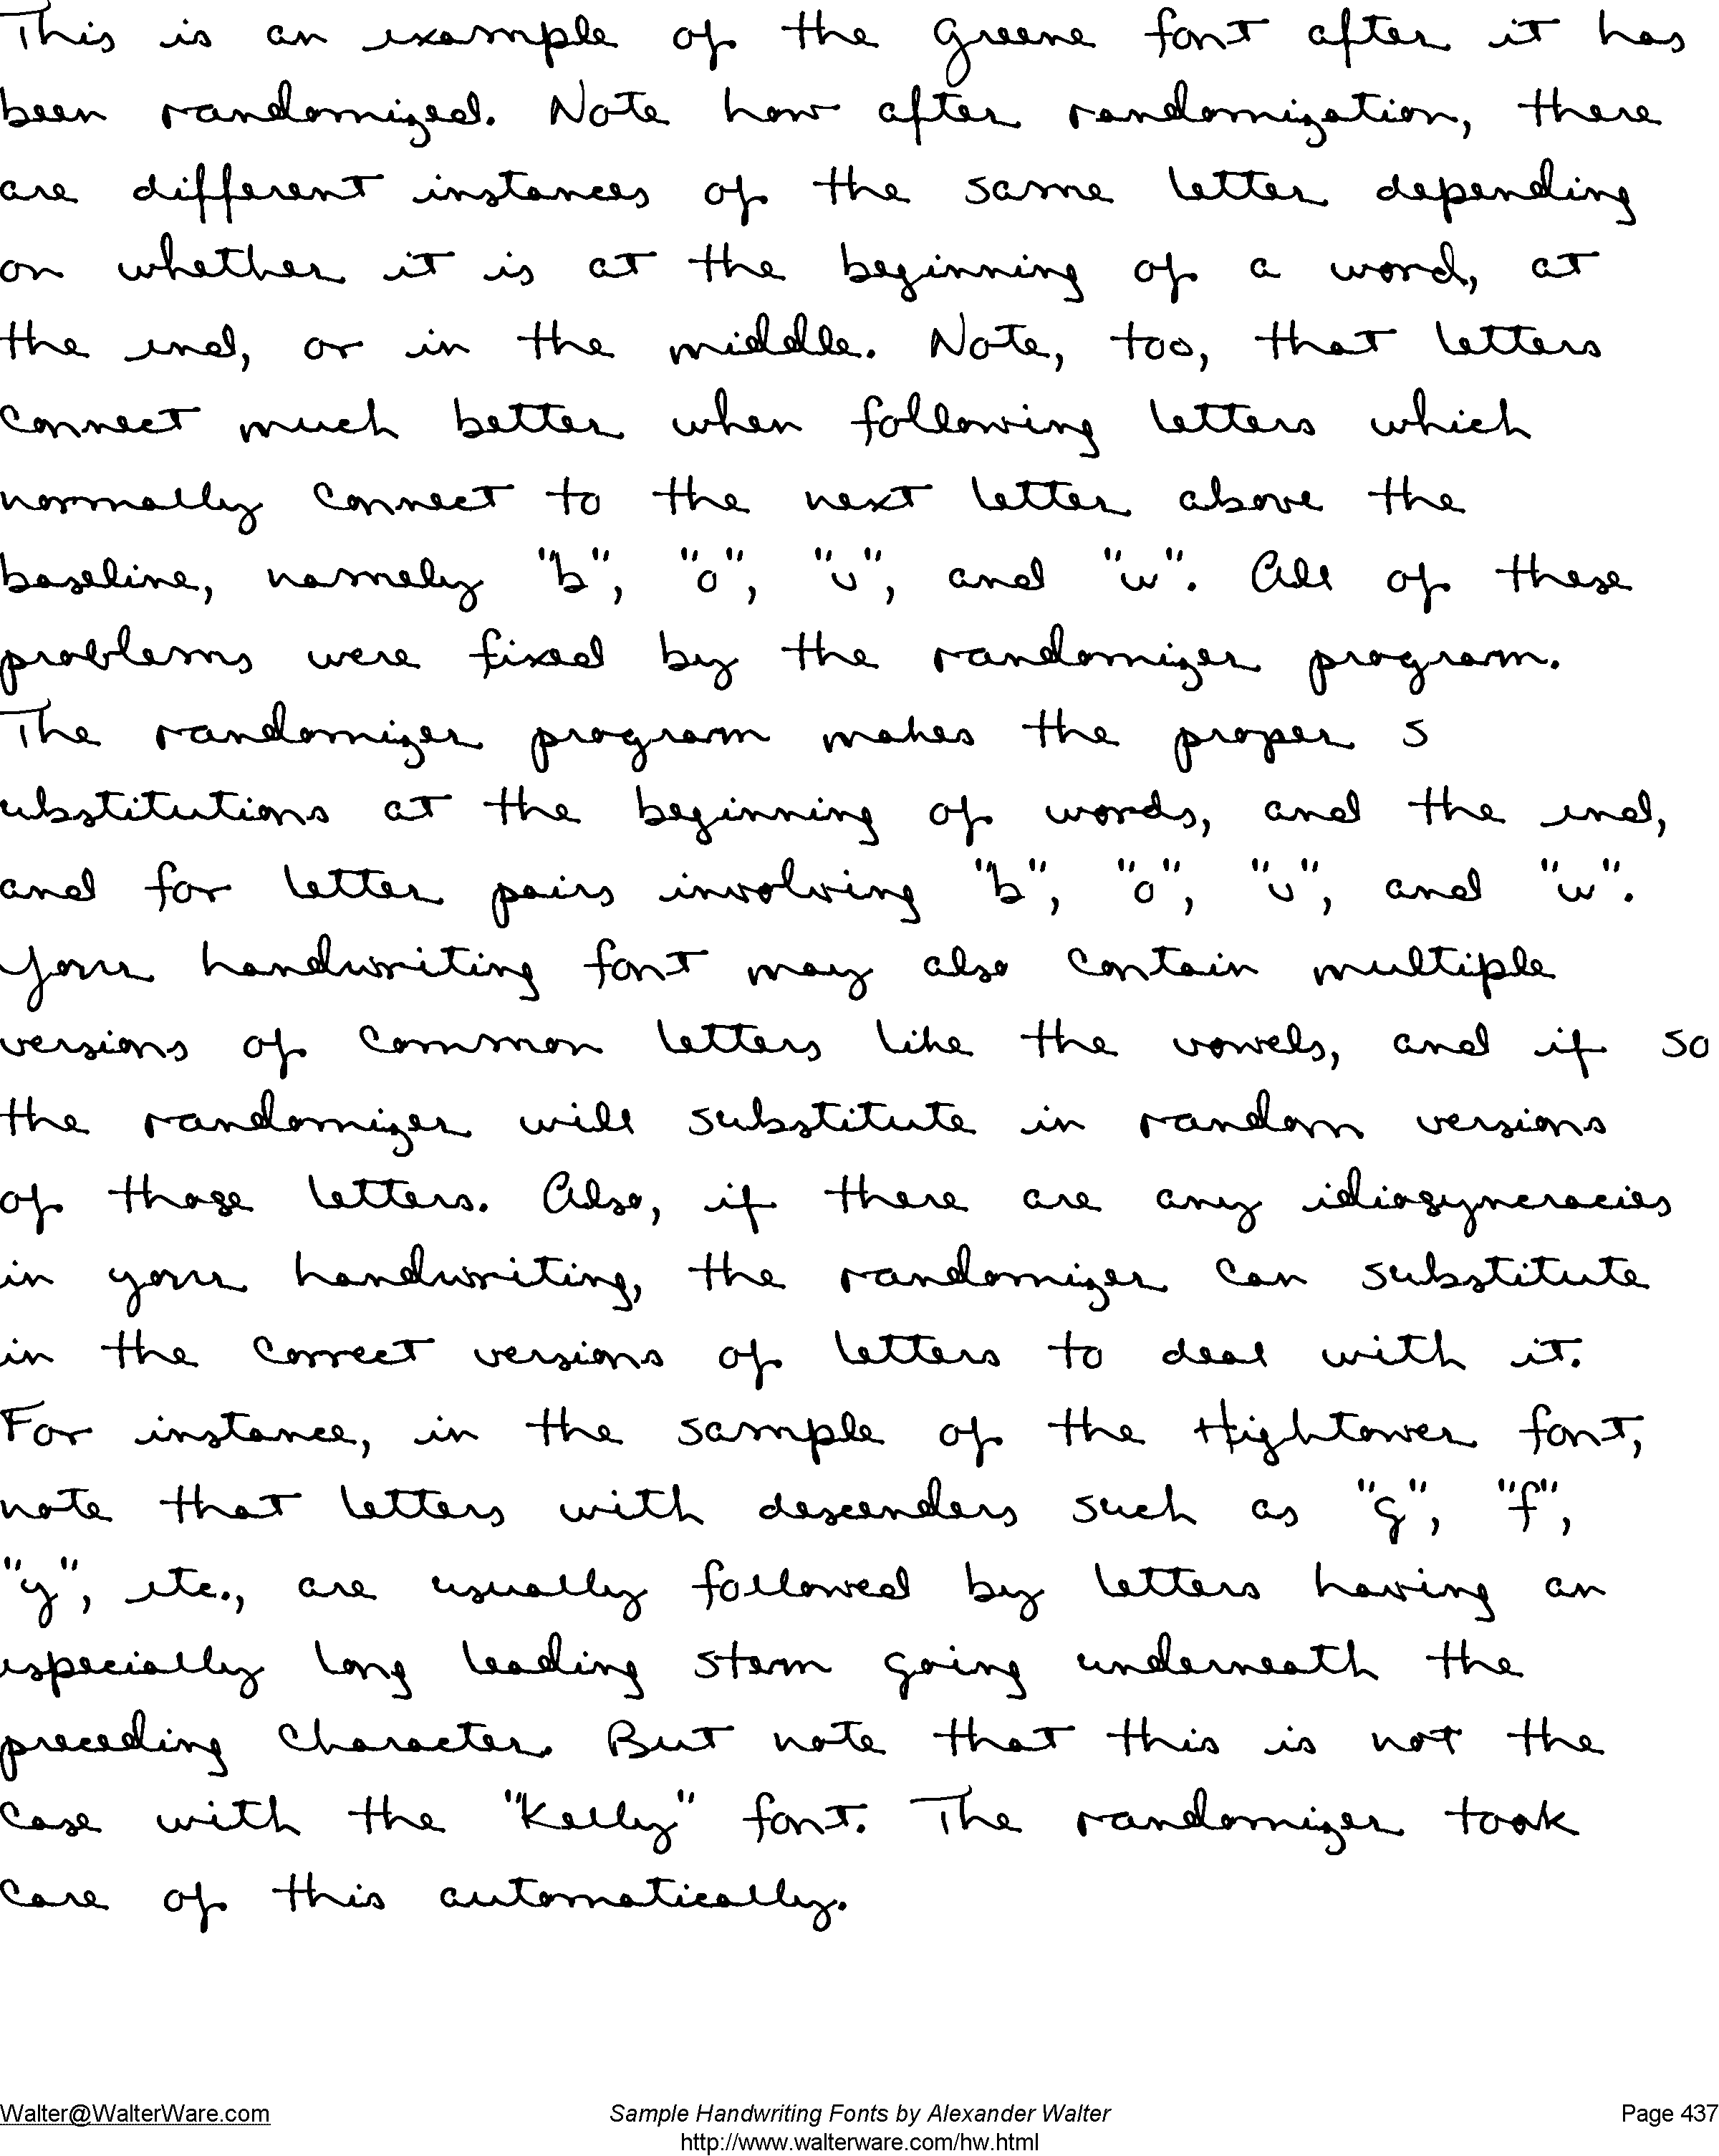 This is an example of the Greene font after it has
been randomized. Note how after randomization, there
are different instances of the same letter depending
on whether it is at the beginning of a word, at
the end, or in the middle. Note, too, that letters
connect much better when following letters which
normally connect to the next letter above the
baseline, namely "b", "o", "v", and "w". All of these
problems were fixed by the randomizer program.
The randomizer program makes the proper s
ubstitutions at the beginning of words, and the end,
and for letter pairs involving "b", "o", "v", and "w".
Your handwriting font may also contain multiple
versions of common letters like the vowels, and if so
the randomizer will substitute in random versions
of those letters. Also, if there are any idiosyncracies
in your handwriting, the randomizer can substitute
in the correct versions of letters to deal with it.
For instance, in the sample of the Hightower font,
note that letters with descenders such as "g", "f",
"y", etc., are usually followed by letters having an
especially long leading stem going underneath the
preceding character. But note that this is not the
case with the "Kelly" font. The randomizer took
care of this automatically.
Walter@WalterWare.com Sample Handwriting Fonts by Alexander Walter Page 437
http://www.walterware.com/hw.html